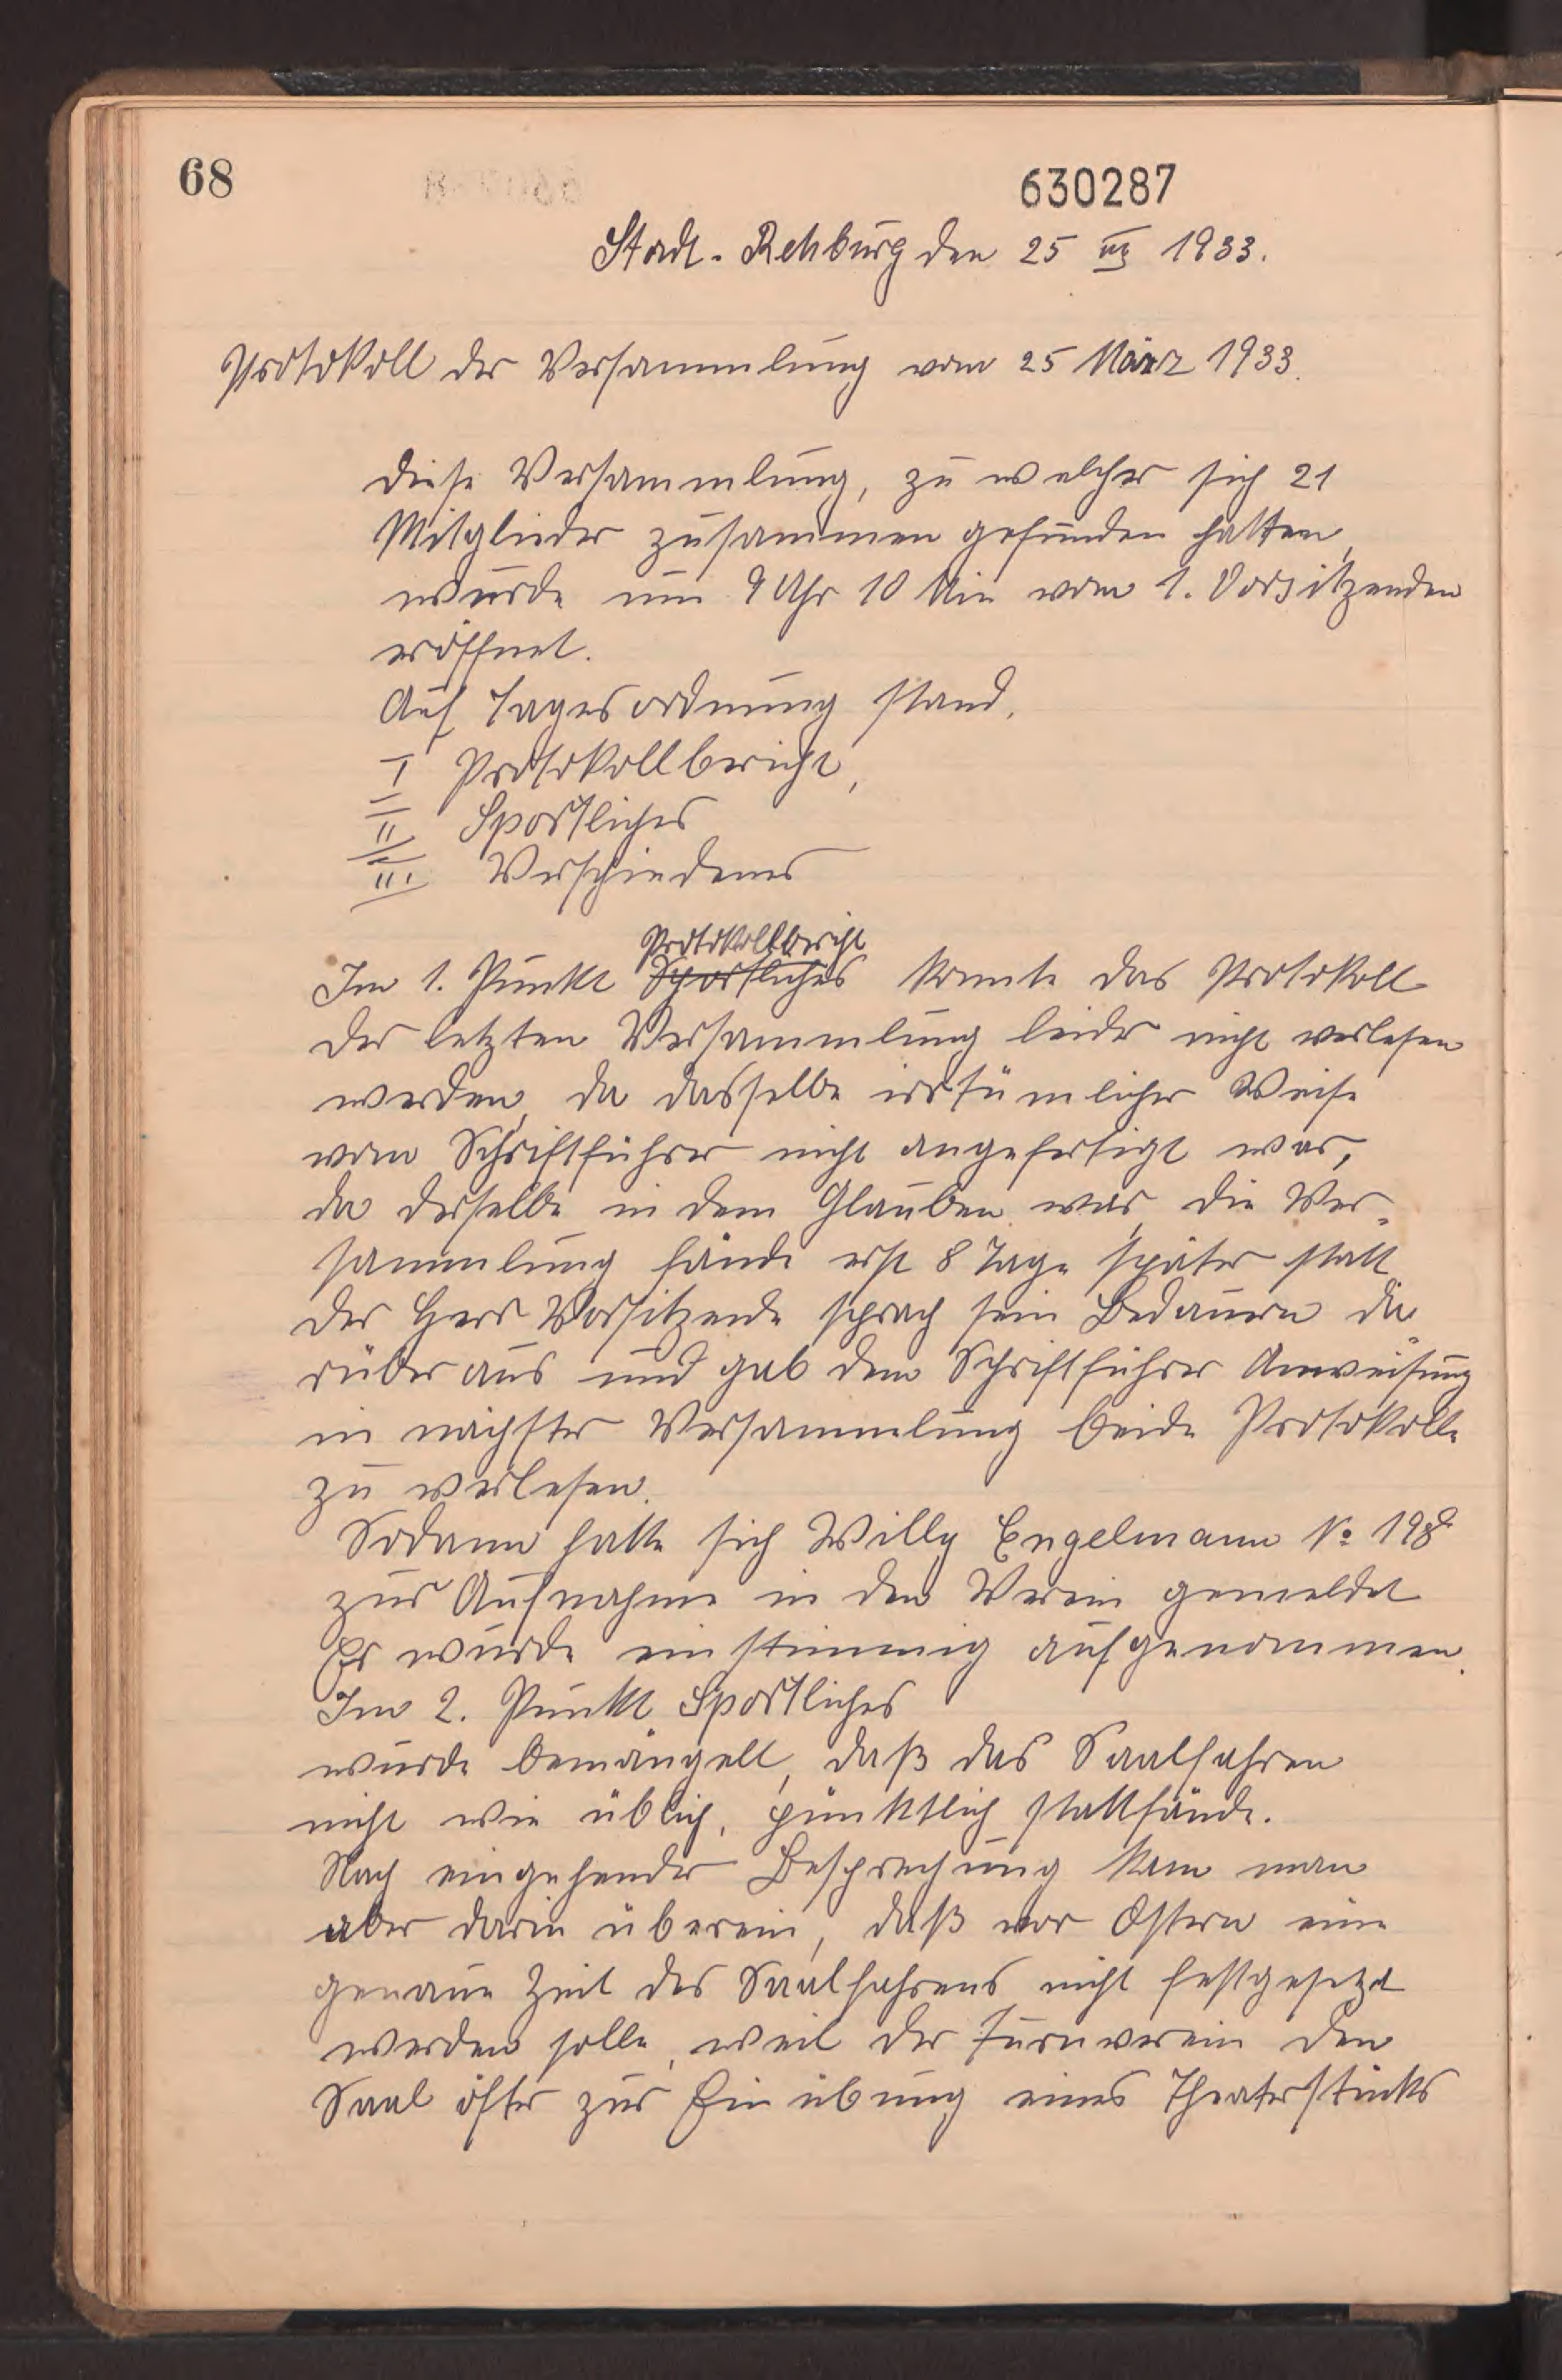 68
630287
Stadt-Rehburg den 25 III 1933.
Protokoll der Versammlung vom 25 März 1933.
Diese Versammlung, zu welcher sich 21
Mitglieder zusammen gefunden hatten,
wurde um 9 Uhr 10 Min vom 1. Vorsitzenden
eröffnet.
Auf Tagesordnung stand.
I Protokollbericht,
II Sportliches
III Verschiedenes
Protokollbericht
Im 1. Punkt Sportliches konnte das Protokoll
der letzten Versammlung leider nicht verlesen
werden, da dasselbe irrtümlicher Weise
vom Schriftführer nicht angefertigt war,
da derselbe in dem Glauben war, die Ver-
sammlung fände erst 8 Tage später statt
Der Herr Vorsitzende sprach sein Bedauern da
rüber aus und gab dem Schriftführer Anweisung
in nächster Versammlung beide Protokolle
zu verlesen.
Sodann hatte sich Willy Engelmann No 198
zur Aufnahme in den Verein gemeldet
Er wurde einstimmig aufgenommen.
Im 2. Punkt Sportliches
wurde bemängelt, daß das Saalfahren
nicht wie üblich, pünktlich stattfände.
Nach eingehender Besprechung kam man
aber darin überein, daß vor Ostern eine
genaue Zeit des Saalfahrens nicht festgesetzt
werden solle, weil der Turnverein den
Saal öfter zur Einübung eines Theaterstücks